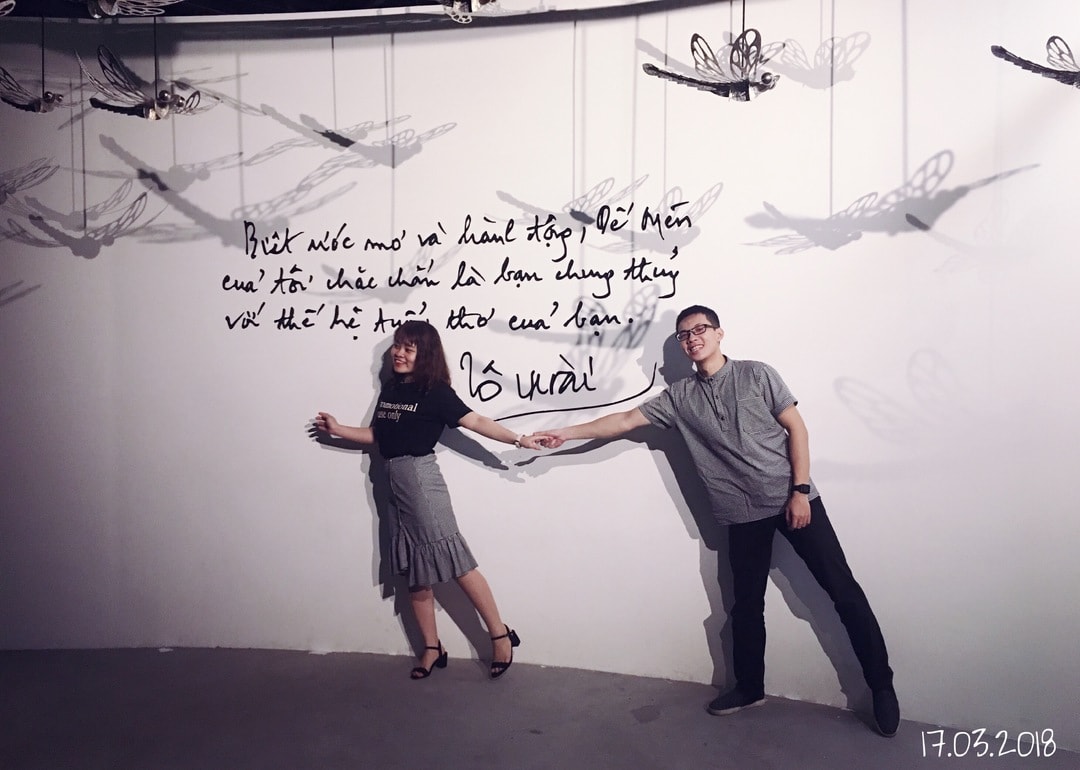 Biết ước mơ và hành động, Dế Mèn
của tôi chắc chắn là bạn chung thuỷ
với thế hệ tuổi thơ của bạn.
Tô Hoài
use only
17.03.2018